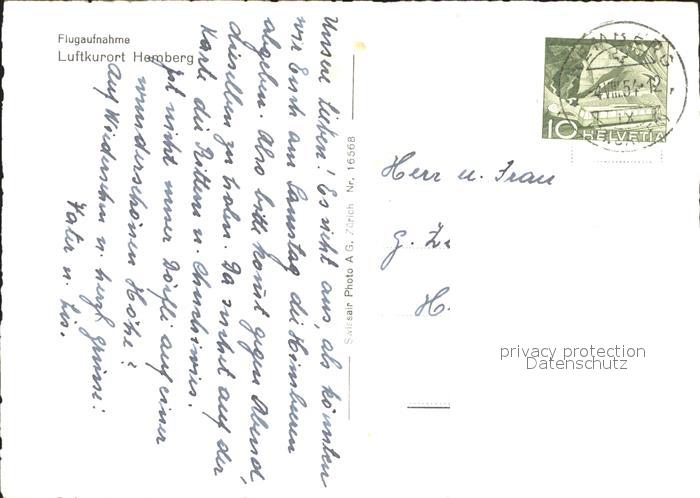 Flugaufnahme
Luftkurort Hemberg
Unsere Lieben! Es sieht aus, als könnten
wir Euch am Samstag die Himbeeren
abgeben. Also bitte kommt gegen Abend,
dieselben zu holen. Da sieht auf der
Karte, die Rittera u.
ist nicht unser Dörfli auf einer
wunderschönen Höhe?
Auf Wiedersehn u. herzl. Grüsse:
Vater u. Lis.
Swissair Photo A.G. Zürich Nr. 16568
HEMBERG
4.VIII.54-12
10 HELVETIA
Herr u. Frau
G. Z
H.
privacy protection
Datenschutz